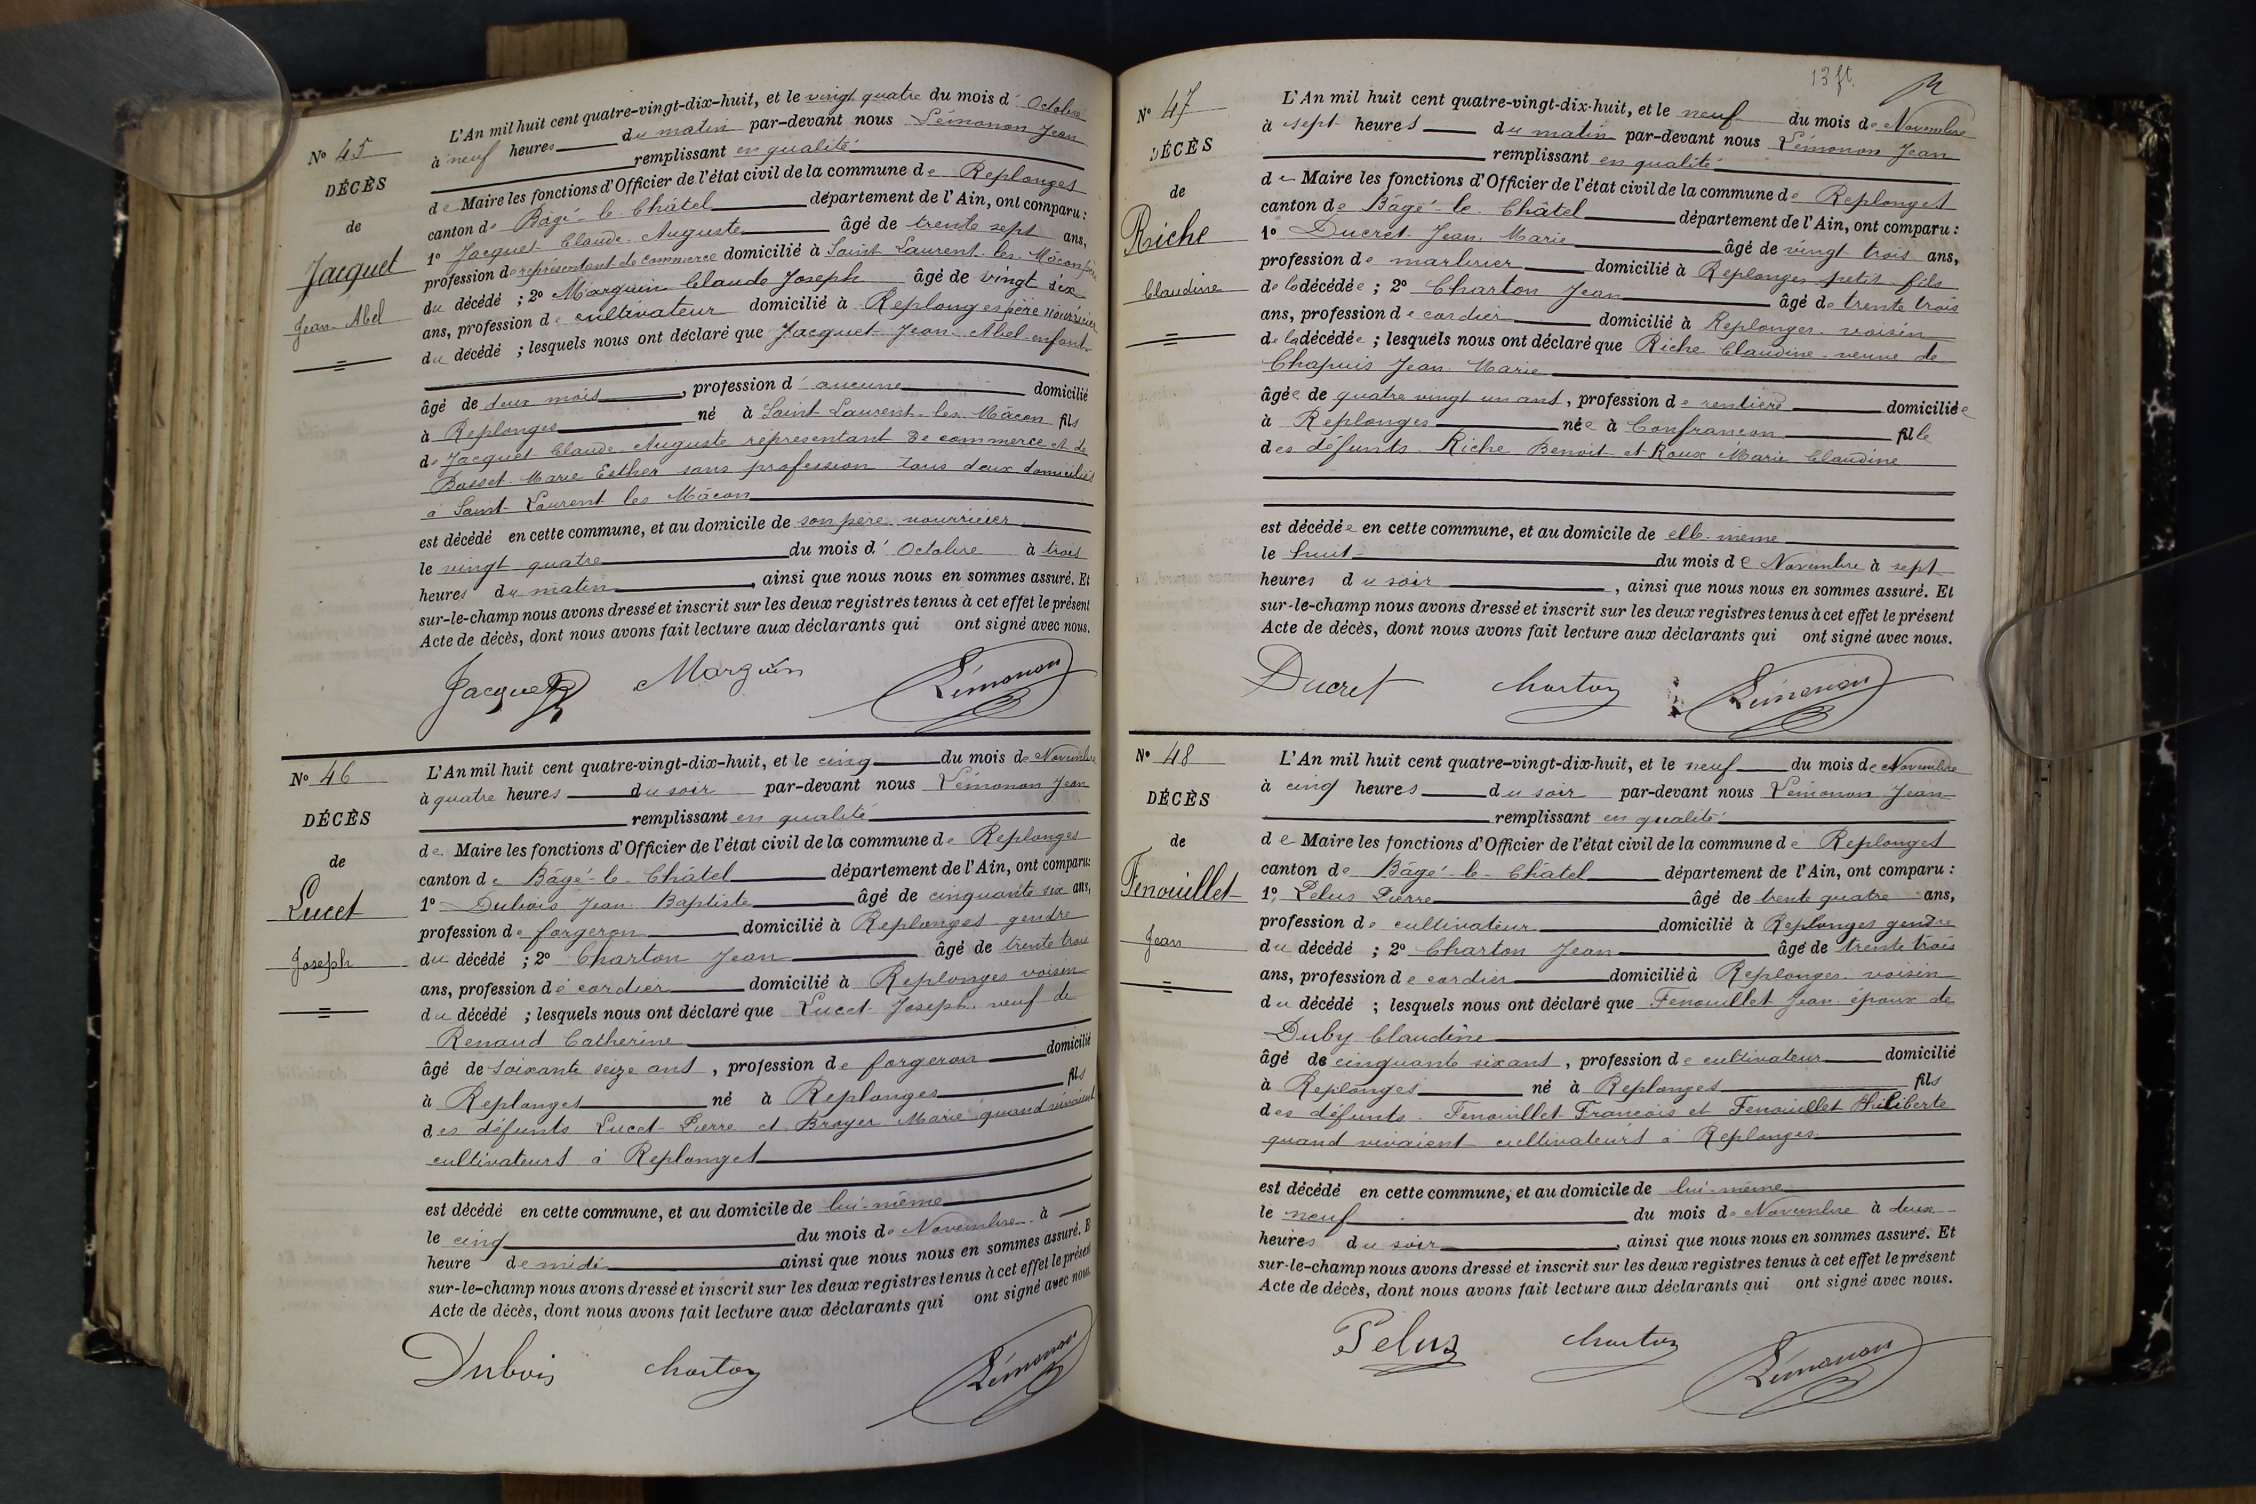 N° 45
DÉCÈS
de
Jacquet
Jean Abel
L'An mil huit cent quatre-vingt-dix-huit, et le vingt quatre du mois d'Octobre
à neuf heures du matin par-devant nous Lémonon Jean
remplissant en qualité
de Maire les fonctions d'Officier de l'état civil de la commune de Replonges
canton de Bâgé-le-Châtel département de l'Ain, ont comparu :
1° Jacquet Claude Auguste âgé de trente sept ans,
profession de représentant de commerce domicilié à Saint Laurent-les-Mâcon père
du décédé ; 2° Marguin Claude Joseph âgé de vingt six
ans, profession de cultivateur domicilié à Replonges père nourricier
du décédé ; lesquels nous ont déclaré que Jacquet Jean Abel enfant
âgé de deux mois, profession d'aucune domicilié
à Replonges né à Saint Laurent-les-Mâcon fils
de Jacquet Claude Auguste représentant de commerce et de
Basset Marie Esther sans profession tous deux domiciliés
à Saint-Laurent les Mâcon
est décédé en cette commune, et au domicile de son père nourricier
le vingt quatre du mois d'Octobre à trois
heures du matin, ainsi que nous nous en sommes assuré. Et
sur-le-champ nous avons dressé et inscrit sur les deux registres tenus à cet effet le présent
Acte de décès, dont nous avons fait lecture aux déclarants qui ont signé avec nous.
Jacquet Marguin Lémonon
N° 46
DÉCÈS
de
Lucet
Joseph
L'An mil huit cent quatre-vingt-dix-huit, et le cinq du mois de Novembre
à quatre heures du soir par-devant nous Lémonon Jean
remplissant en qualité
de Maire les fonctions d'Officier de l'état civil de la commune de Replonges
canton de Bâgé-le-Châtel département de l'Ain, ont comparu :
1° Dubois Jean Baptiste âgé de cinquante six ans,
profession de forgeron domicilié à Replonges gendre
du décédé ; 2° Charton Jean âgé de trente trois
ans, profession de cordier domicilié à Replonges voisin
du décédé ; lesquels nous ont déclaré que Lucet Joseph veuf de
Renaud Catherine
âgé de soixante seize ans, profession de forgeron domicilié
à Replonges né à Replonges fils
des défunts Lucet Pierre et Broyer Marie quand vivaient
cultivateurs à Replonges
est décédé en cette commune, et au domicile de lui-même
le cinq du mois de Novembre à
heure de midi ainsi que nous nous en sommes assuré. Et
sur-le-champ nous avons dressé et inscrit sur les deux registres tenus à cet effet le présent
Acte de décès, dont nous avons fait lecture aux déclarants qui ont signé avec nous.
Dubois Charton Lémonon
13 ft.
N° 47
DÉCÈS
de
Riche
Claudine
L'An mil huit cent quatre-vingt-dix-huit, et le neuf du mois de Novembre
à sept heures du matin par-devant nous Lémonon Jean
remplissant en qualité
de Maire les fonctions d'Officier de l'état civil de la commune de Replonges
canton de Bâgé-le-Châtel département de l'Ain, ont comparu :
1° Ducret Jean Marie âgé de vingt trois ans,
profession de marinier domicilié à Replonges petit-fils
de la décédée ; 2° Charton Jean âgé de trente trois
ans, profession de cordier domicilié à Replonges voisin
de la décédée ; lesquels nous ont déclaré que Riche Claudine veuve de
Chapuis Jean Marie
âgée de quatre vingt un ans, profession de rentière domiciliée
à Replonges née à Confrançon fille
des défunts Riche Benoit et Roux Marie Claudine
est décédée en cette commune, et au domicile de elle-même
le huit du mois de Novembre à sept
heures du soir, ainsi que nous nous en sommes assuré. Et
sur-le-champ nous avons dressé et inscrit sur les deux registres tenus à cet effet le présent
Acte de décès, dont nous avons fait lecture aux déclarants qui ont signé avec nous.
Ducret Charton Lémonon
N° 48
DÉCÈS
de
Fenouillet
Jean
L'An mil huit cent quatre-vingt-dix-huit, et le neuf du mois de Novembre
à cinq heures du soir par-devant nous Lémonon Jean
remplissant en qualité
de Maire les fonctions d'Officier de l'état civil de la commune de Replonges
canton de Bâgé-le-Châtel département de l'Ain, ont comparu :
1° Pelus Pierre âgé de trente quatre ans,
profession de cultivateur domicilié à Replonges gendre
du décédé ; 2° Charton Jean âgé de trente trois
ans, profession de cordier domicilié à Replonges voisin
du décédé ; lesquels nous ont déclaré que Fenouillet Jean époux de
Duby Claudine
âgé de cinquante six ans, profession de cultivateur domicilié
à Replonges né à Replonges fils
des défunts Fenouillet François et Fenouillet Philiberte
quand vivaient cultivateurs à Replonges
est décédé en cette commune, et au domicile de lui-même
le neuf du mois de Novembre à deux
heures du soir, ainsi que nous nous en sommes assuré. Et
sur-le-champ nous avons dressé et inscrit sur les deux registres tenus à cet effet le présent
Acte de décès, dont nous avons fait lecture aux déclarants qui ont signé avec nous.
Pelus Charton Lémonon